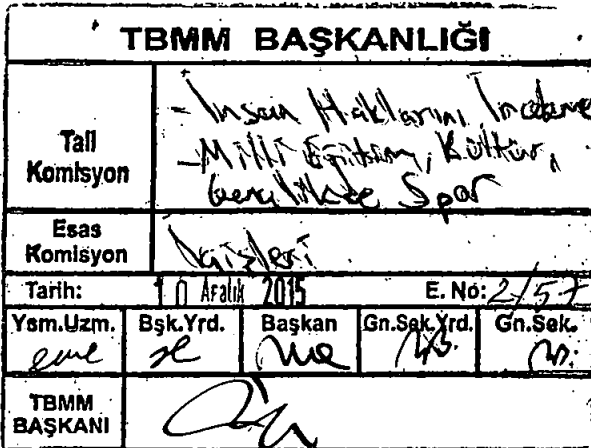 TBMM BAŞKANLIĞI
Tali Komisyon
- İnsan Haklarını İnceleme
- Milli Eğitim, Kültür,
Gençlik ve Spor
Esas Komisyon
İçişleri
Tarih: 10 Aralık 2015 E. No: 2/57
Ysm.Uzm. Bşk.Yrd. Başkan Gn.Sek.Yrd. Gn.Sek.
TBMM BAŞKANI